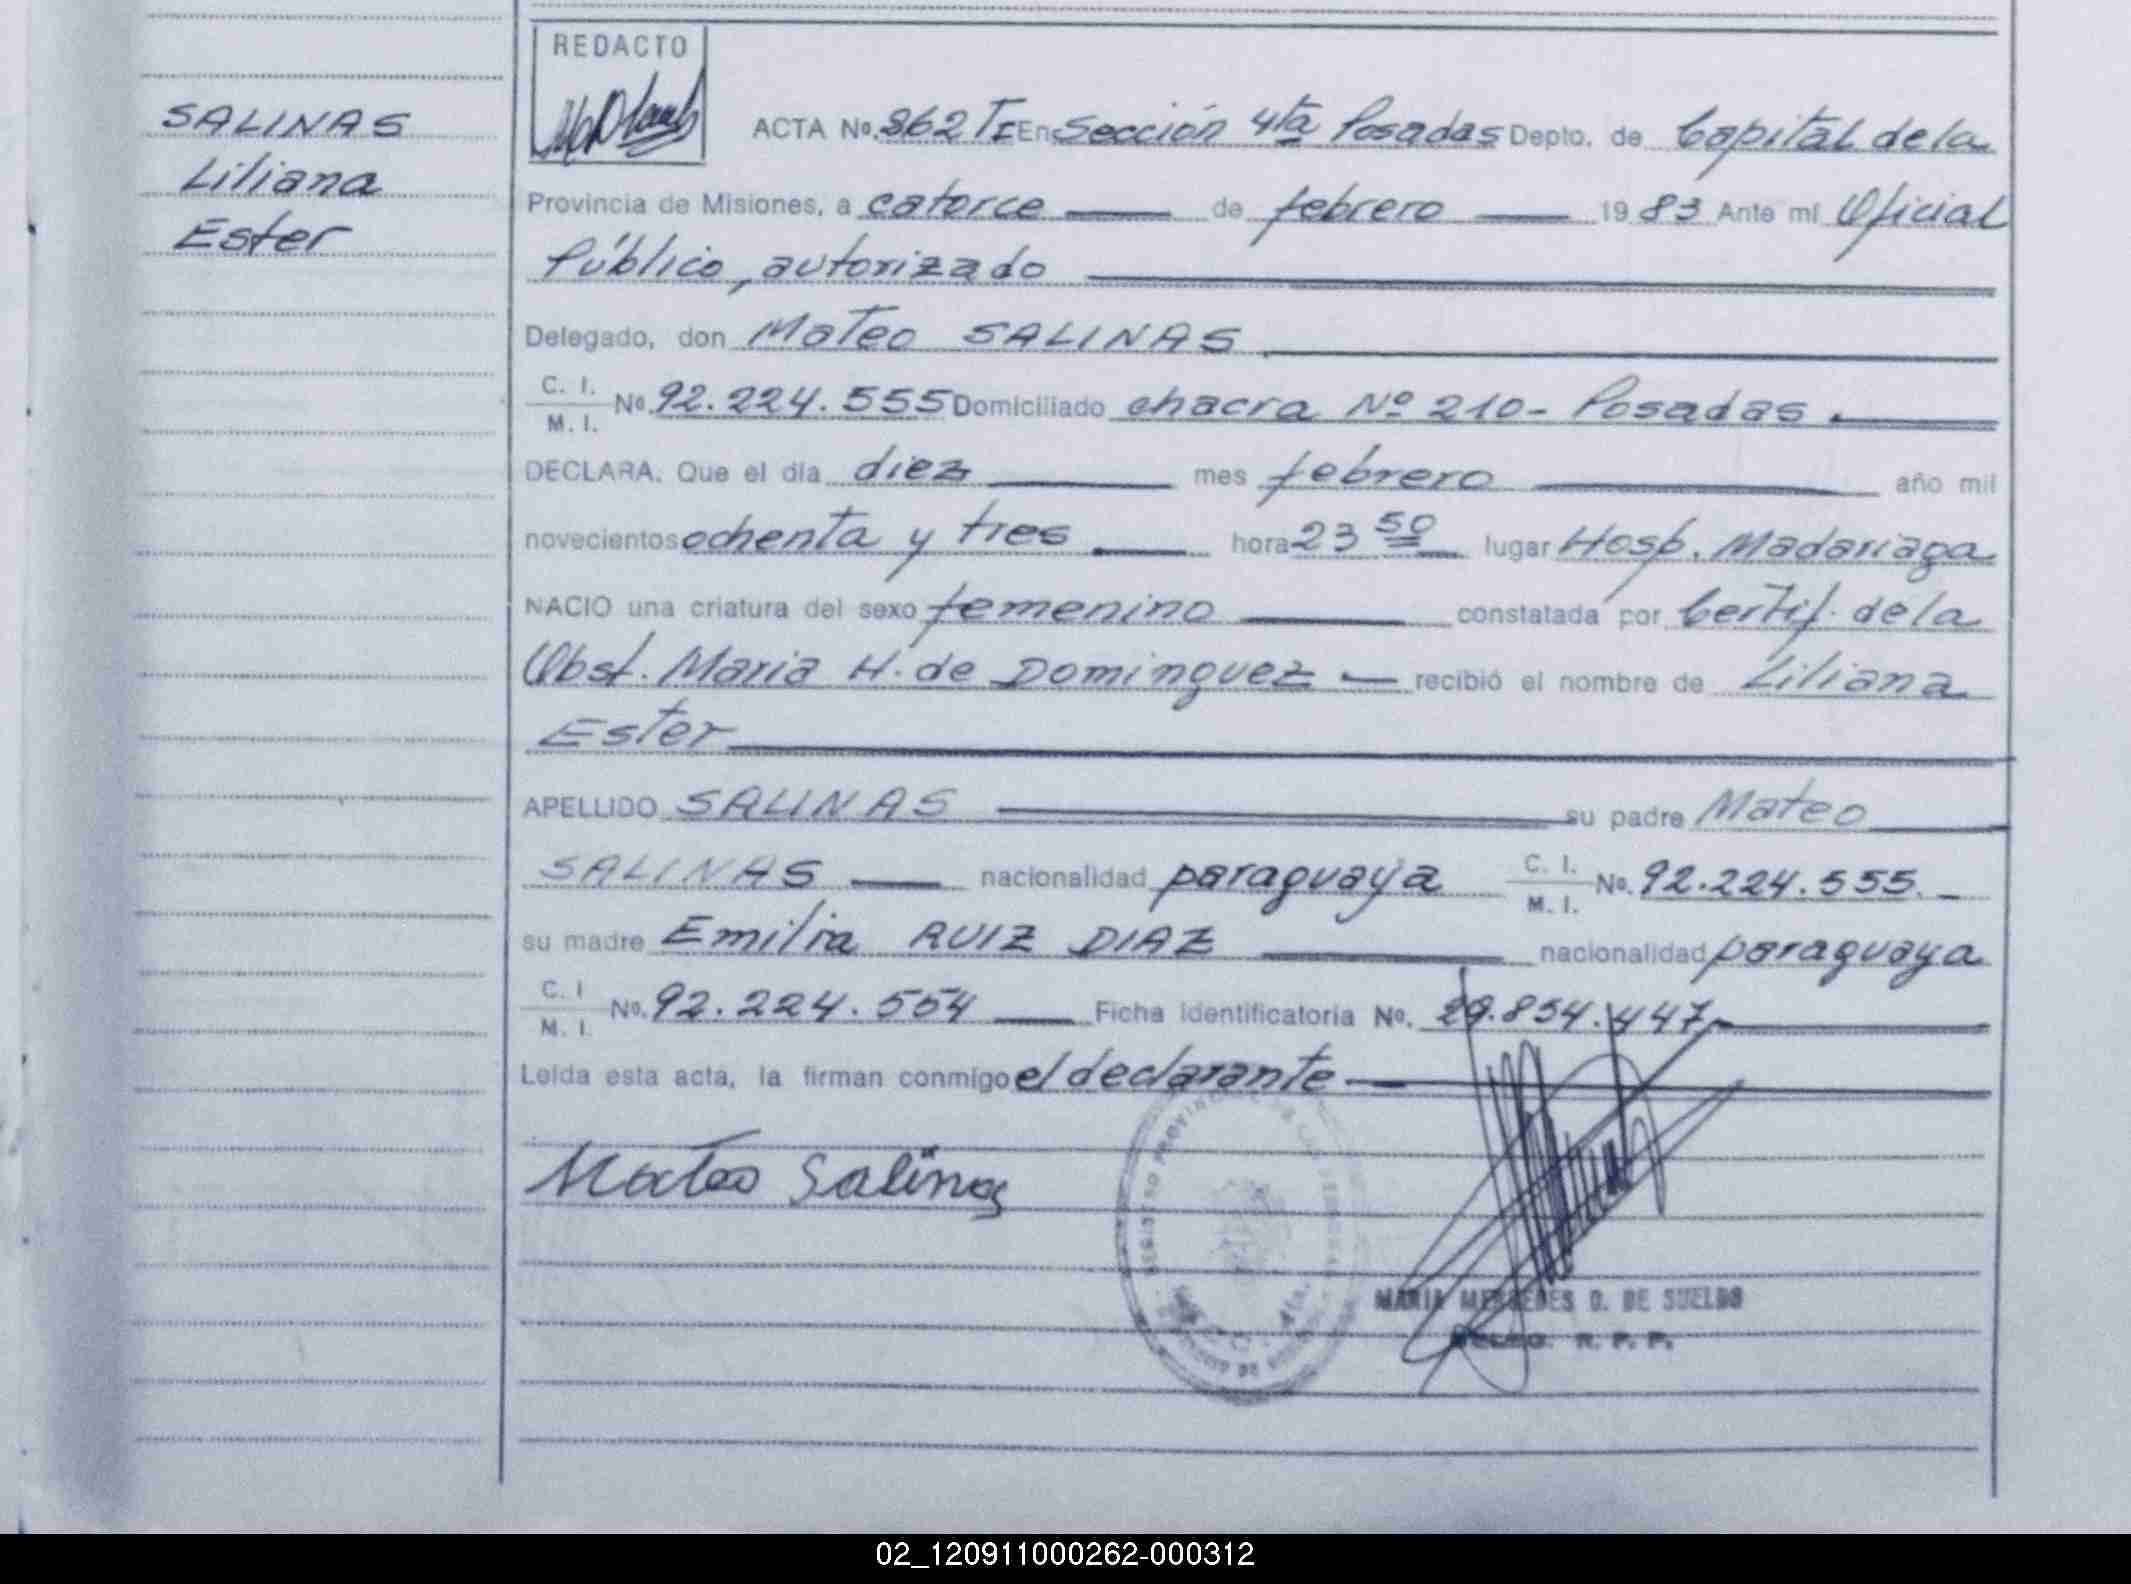 SALINAS
Liliana
Ester
REDACTO
ACTA No. 862 TI En Sección 4ta Posadas Depto. de Capital de la
Provincia de Misiones, a catorce de febrero 1983 Ante mí Oficial
Público, autorizado
Delegado, don Mateo SALINAS
C. I.
M. I. No. 92.224.555 Domiciliado chacra Nº 210- Posadas.
DECLARA. Que el día diez mes febrero año mil
novecientos ochenta y tres hora 23 50 lugar Hosp. Madariaga
NACIO una criatura del sexo femenino constatada por Certif. de la
Obst. Maria H. de Dominguez recibió el nombre de Liliana
Ester
APELLIDO SALINAS su padre Mateo
SALINAS nacionalidad paraguaya C. I. M. I. No. 92.224.555.
su madre Emilia RUIZ DIAZ nacionalidad paraguaya
C. I M. I. No. 92.224.554 Ficha identificatoria No. 29.854.447
Leída esta acta, la firman conmigo el declarante
Mateo Salinas
REGISTRO PROVINCIAL DE LAS PERSONAS
MARIA MERCEDES D. DE SUELDO
DELEG. R. P. P.
02_120911000262-000312